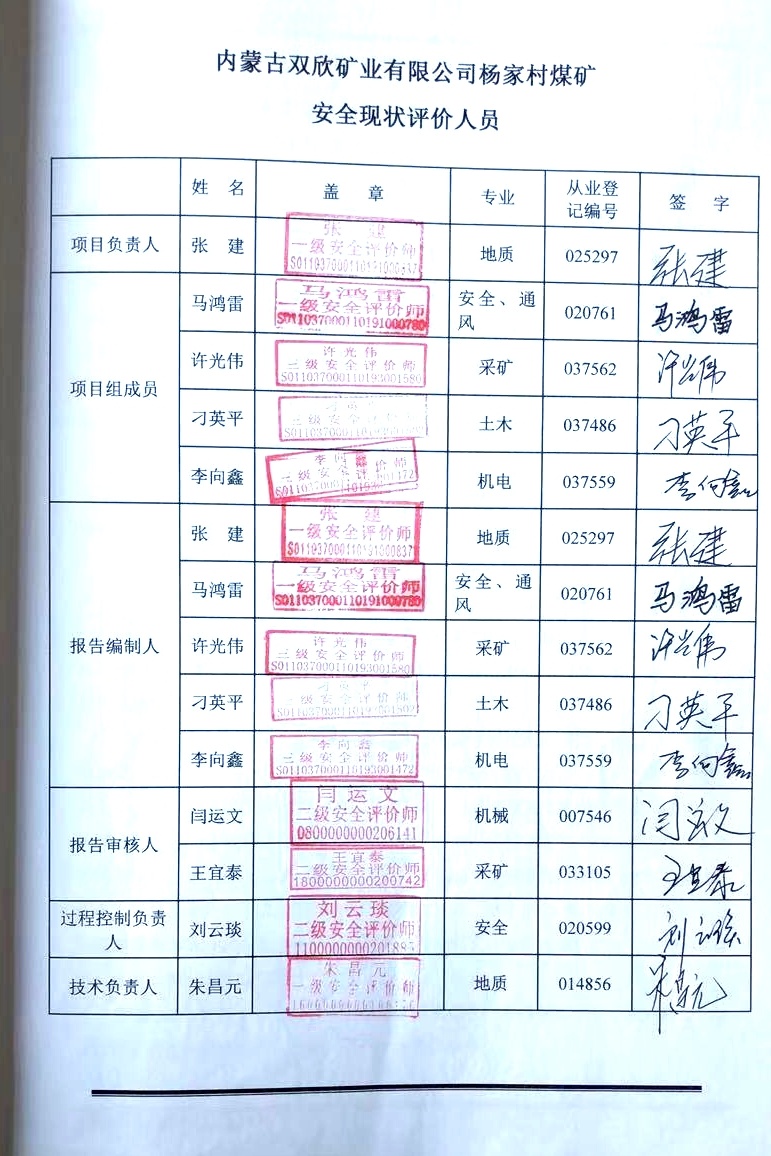 内蒙古双欣矿业有限公司杨家村煤矿
安全现状评价人员
姓 名 盖 章 专业 从业登记编号 签 字
项目负责人 张 建 地质 025297 张建
张 建
一级安全评价师
项目组成员
马鸿雷 安全、通风 020761 马鸿雷
马鸿雷
一级安全评价师
S011037000110191000780
许光伟 采矿 037562 许光伟
许光伟
三级安全评价师
S011037000110193001580
刁英平 土木 037486 刁英平
三级安全评价师
李向鑫 机电 037559 李向鑫
李向鑫
三级安全评价师
报告编制人
张 建 地质 025297 张建
张 建
一级安全评价师
S011037000110191000837
马鸿雷 安全、通风 020761 马鸿雷
马鸿雷
一级安全评价师
S011037000110191000780
许光伟 采矿 037562 许光伟
许光伟
三级安全评价师
S011037000110193001580
刁英平 土木 037486 刁英平
刁英平
三级安全评价师
李向鑫 机电 037559 李向鑫
李向鑫
三级安全评价师
S011037000110193001472
报告审核人
闫运文 机械 007546 闫运文
闫运文
二级安全评价师
0800000000206141
王宜泰 采矿 033105 王宜泰
王宜泰
二级安全评价师
1800000000200742
过程控制负责人 刘云琰 安全 020599 刘云琰
刘云琰
二级安全评价师
技术负责人 朱昌元 地质 014856 朱昌元
朱昌元
一级安全评价师